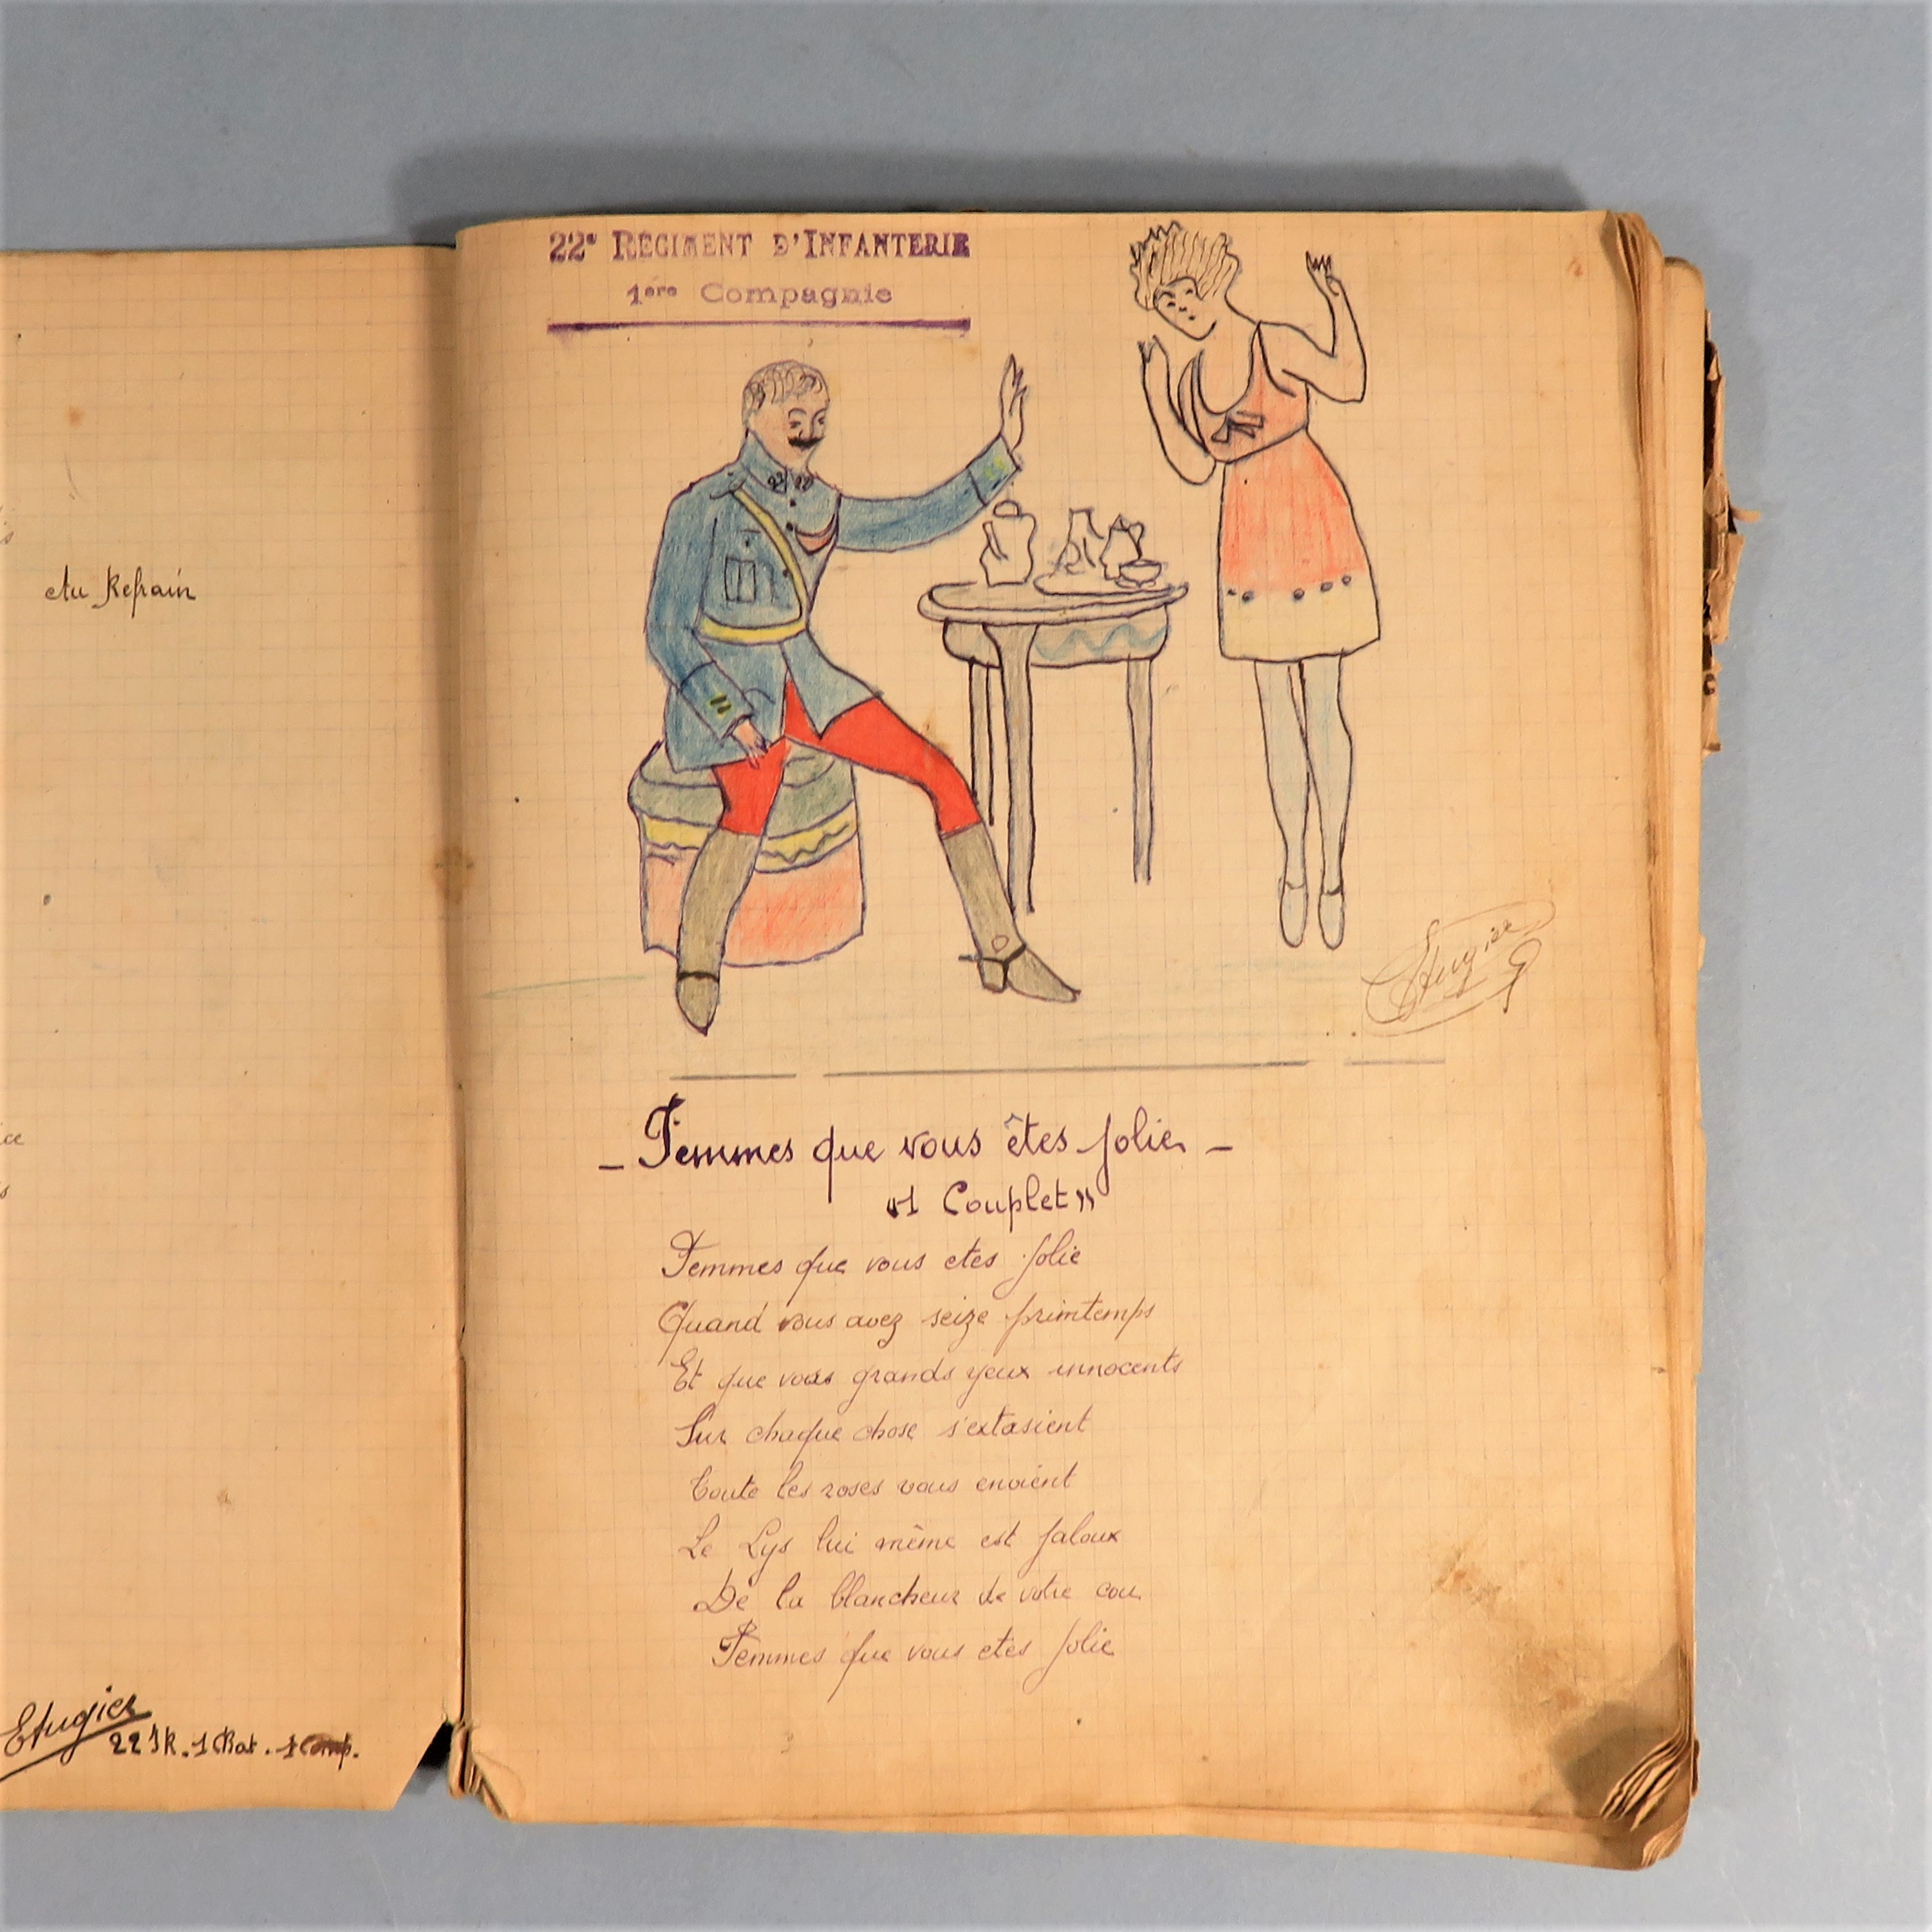 Au Refrain
Etugier
22 IR. 1 Bat. 1 Comp.
22e RÉGIMENT D'INFANTERIE
1ère Compagnie
22 22
Etugier
- Femmes que vous êtes jolie -
"1 Couplet"
Femmes que vous etes jolie
Quand vous avez seize printemps
Et que vous grands yeux innocents
Sur chaque chose s'extasient
Toute les roses vous envient
Le Lys lui même est jaloux
De la blancheur de votre cou
Femmes que vous etes jolie